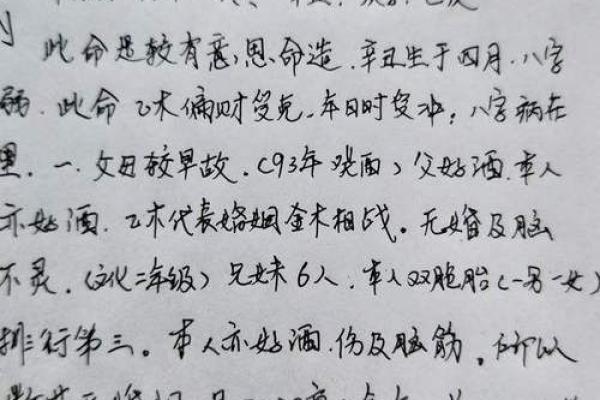 此命是较有意思命造.辛丑生于四月.八字
弱.此命乙木偏财受克.年日时受冲;八字病在
里.一.父母较早故.(93年癸酉)父好酒.本人
亦好酒.乙木代表婚姻金木相战。无婚及脑
不灵.(文化二年级)兄妹6人.本人双胞胎(一男一女)
排行第三。本人亦好酒.伤及脑筋。所以